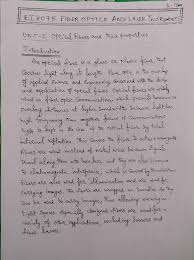 EI2075 FIBER OPTICS AND LASER Instruments
UNIT-I Optical Fibers and their properties
Introduction
An optical fiber is a glass or plastic fiber that
carries light along its length. Fiber optics is the overlap
of applied science and engineering concerned with the design
and application of optical fibers. Optical fibers are widely
used in fiber optic Communications, which permits transmission
over distances at higher bandwidths
than other forms of Communications
light is kept in the core of the optical fiber by total
internal reflection. This causes the fiber to act as a waveguide
Fibers are used instead of metal wires because signals
travel along them with less loss, and they are also immune
to electromagnetic interference,
Fibers are also used for illumination and are
carrying images, in bundles so they
can be used to carry images, thus allowing viewing in
tight spaces. Specially designed fibers are used for a
variety of other applications, including sensors and
fiber lasers.